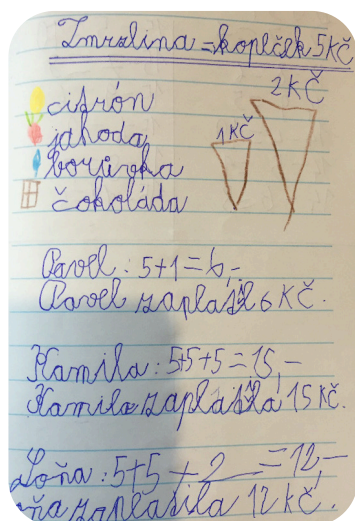 Zmrzlina = kopček 5 Kč
2 Kč
citrón
jahoda
1 Kč
borůvka
čokoláda
Pavel : 5+1=6,-
Pavel zaplatil 6 Kč.
Kamila : 5+5+5=15,-
Kamila zaplatila 15 Kč.
Soňa : 5+5+2=12,-
oňa zaplatila 12 Kč.